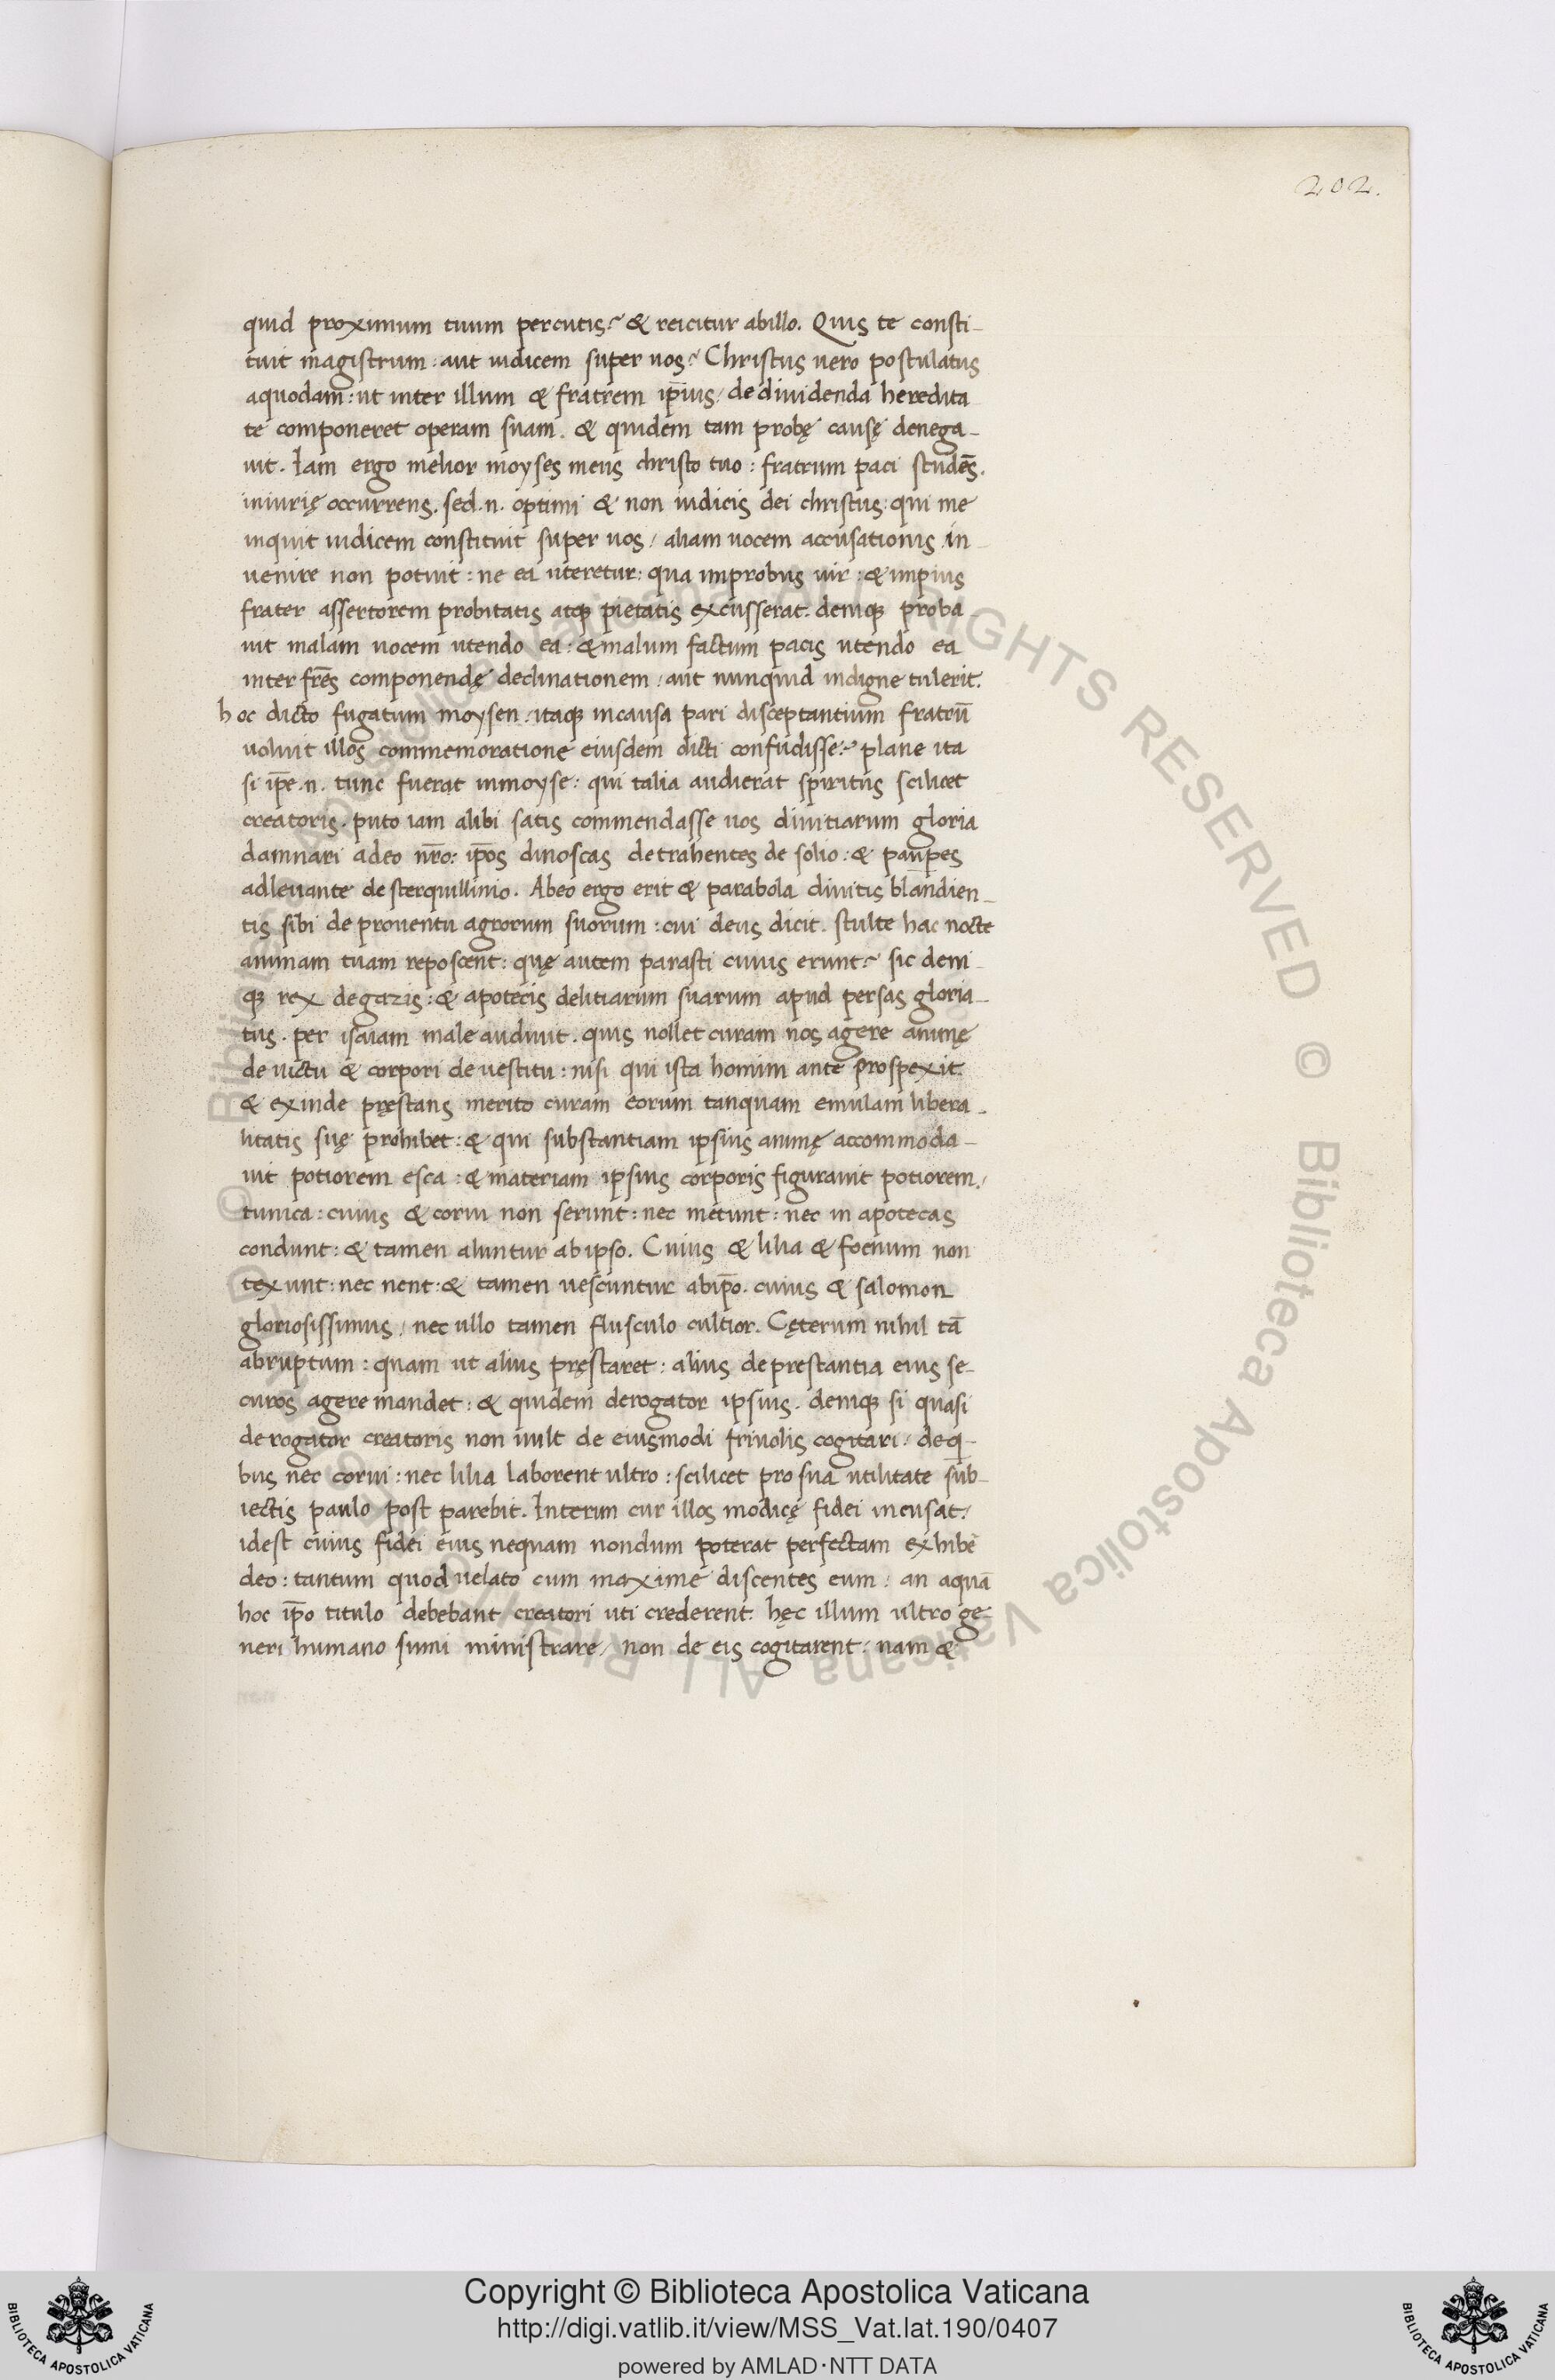 202.
quid proximum tuum percutis? & reicitur abillo. Quis te consti-
tuit magistrum: aut iudicem super uos? Christus uero postulatus
aquodam: ut inter illum & fratrem ip̅ius/ dediuidenda heredita
te componeret operam suam. & quidem tam probę causę denega-
uit. Iam ergo melior moyses meus christo tuo: fratrum paci studēs.
iniurię occurrens. sed .n. optimi & non iudicis dei christus: qui me
inquit iudicem constituit super uos/ aliam uocem accusationis in-
uenire non potuit: ne ea uteretur: qua improbus uir: & impius
frater assertorem probitatis atqꝫ pietatis excusserat. deniqꝫ proba
uit malam uocem utendo ea: & malum factum pacis utendo ea
inter frēs componendę declinationem/ aut nunquid indigne tulerit.
hoc dicto fugatum moysen/ itaqꝫ incausa pari disceptantium fratrū
uoluit illos commemoratione eiusdem dicti confudisse? plane ita
si ip̅e .n. tunc fuerat inmoyse: qui talia audierat spiritus scilicet
creatoris. puto iam alibi satis commendasse uos diuitiarum gloria
damnari adeo nr̅o: ip̅os dinoscas detrahentes de solio: & paup̅es
adleuante de sterquillinio. Abeo ergo erit & parabola diuitis blandien-
tis sibi de prouentu agrorum suorum: cui deus dicit. stulte hac nocte
animam tuam reposcent: quę autem parasti cuius erunt? sic deni-
qꝫ rex degazis: & apotecis delitiarum suarum apud persas gloria-
tus. per isaiam male audiuit. quis nollet curam nos agere animę
de uictu & corpori de uestitu: nisi qui ista homini ante prospexit.
& exinde pręstans merito curam eorum tanquam emulam libera-
litatis suę prohibet: & qui substantiam ipsius animę accommoda-
uit potiorem esca: & materiam ipsius corporis figurauit potiorem/
tunica: cuius & corui non serunt: nec metunt: nec in apotecas
condunt: & tamen aluntur ab ipso. Cuius & lilia & foenum non
texunt: nec nent: & tamen uescuntur abip̅o. cuius & salomon
gloriosissimus/ nec ullo tamen flusculo cultior. Cęterum nihil tā
abruptum: quam ut alius pręstaret: alius de prestantia eius se-
curos agere mandet: & quidem derogator ipsius. deniqꝫ si quasi
derogator creatoris non uult de eiusmodi friuolis cogitari/ deq̅-
bus nec corui: nec lilia laborent ultro: scilicet pro sua utilitate sub-
iectis paulo post parebit. Interim cur illos modicę fidei incusat/
idest cuius fidei eius nequam nondum poterat perfectam exhibē
deo: tantum quod uelato cum maxime discentes eum: an aquā
hoc ip̅o titulo debebant creatori uti crederent. hęc illum ultro ge-
neri humano sumi ministrare/ non de eis cogitarent: nam &
© Biblioteca Apostolica Vaticana ALL RIGHTS RESERVED © Biblioteca Apostolica Vaticana ALL RIGHTS RESERVED
Copyright © Biblioteca Apostolica Vaticana
http://digi.vatlib.it/view/MSS_Vat.lat.190/0407
powered by AMLAD·NTT DATA
BIBLIOTECA APOSTOLICA VATICANA
BIBLIOTECA APOSTOLICA VATICANA